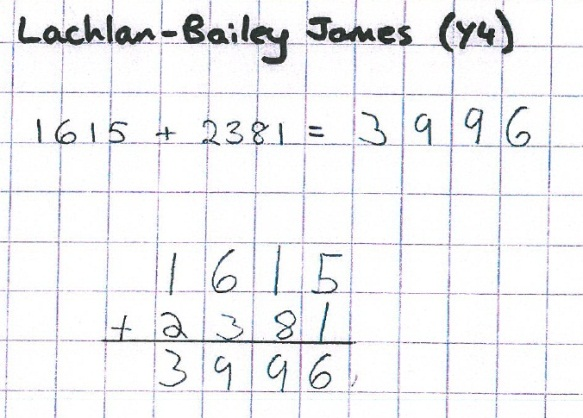 Lachlan-Bailey James (Y4)
1615 + 2381 = 3996
1615
+ 2381
3996